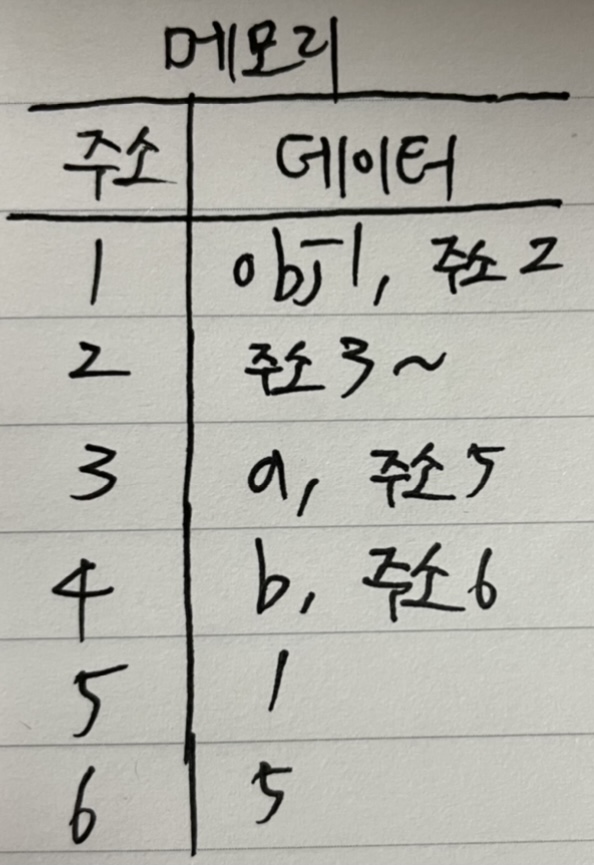 메모리
주소 데이터
1 obj1, 주소 2
2 주소 3 ~
3 a, 주소 5
4 b, 주소 6
5 1
6 5